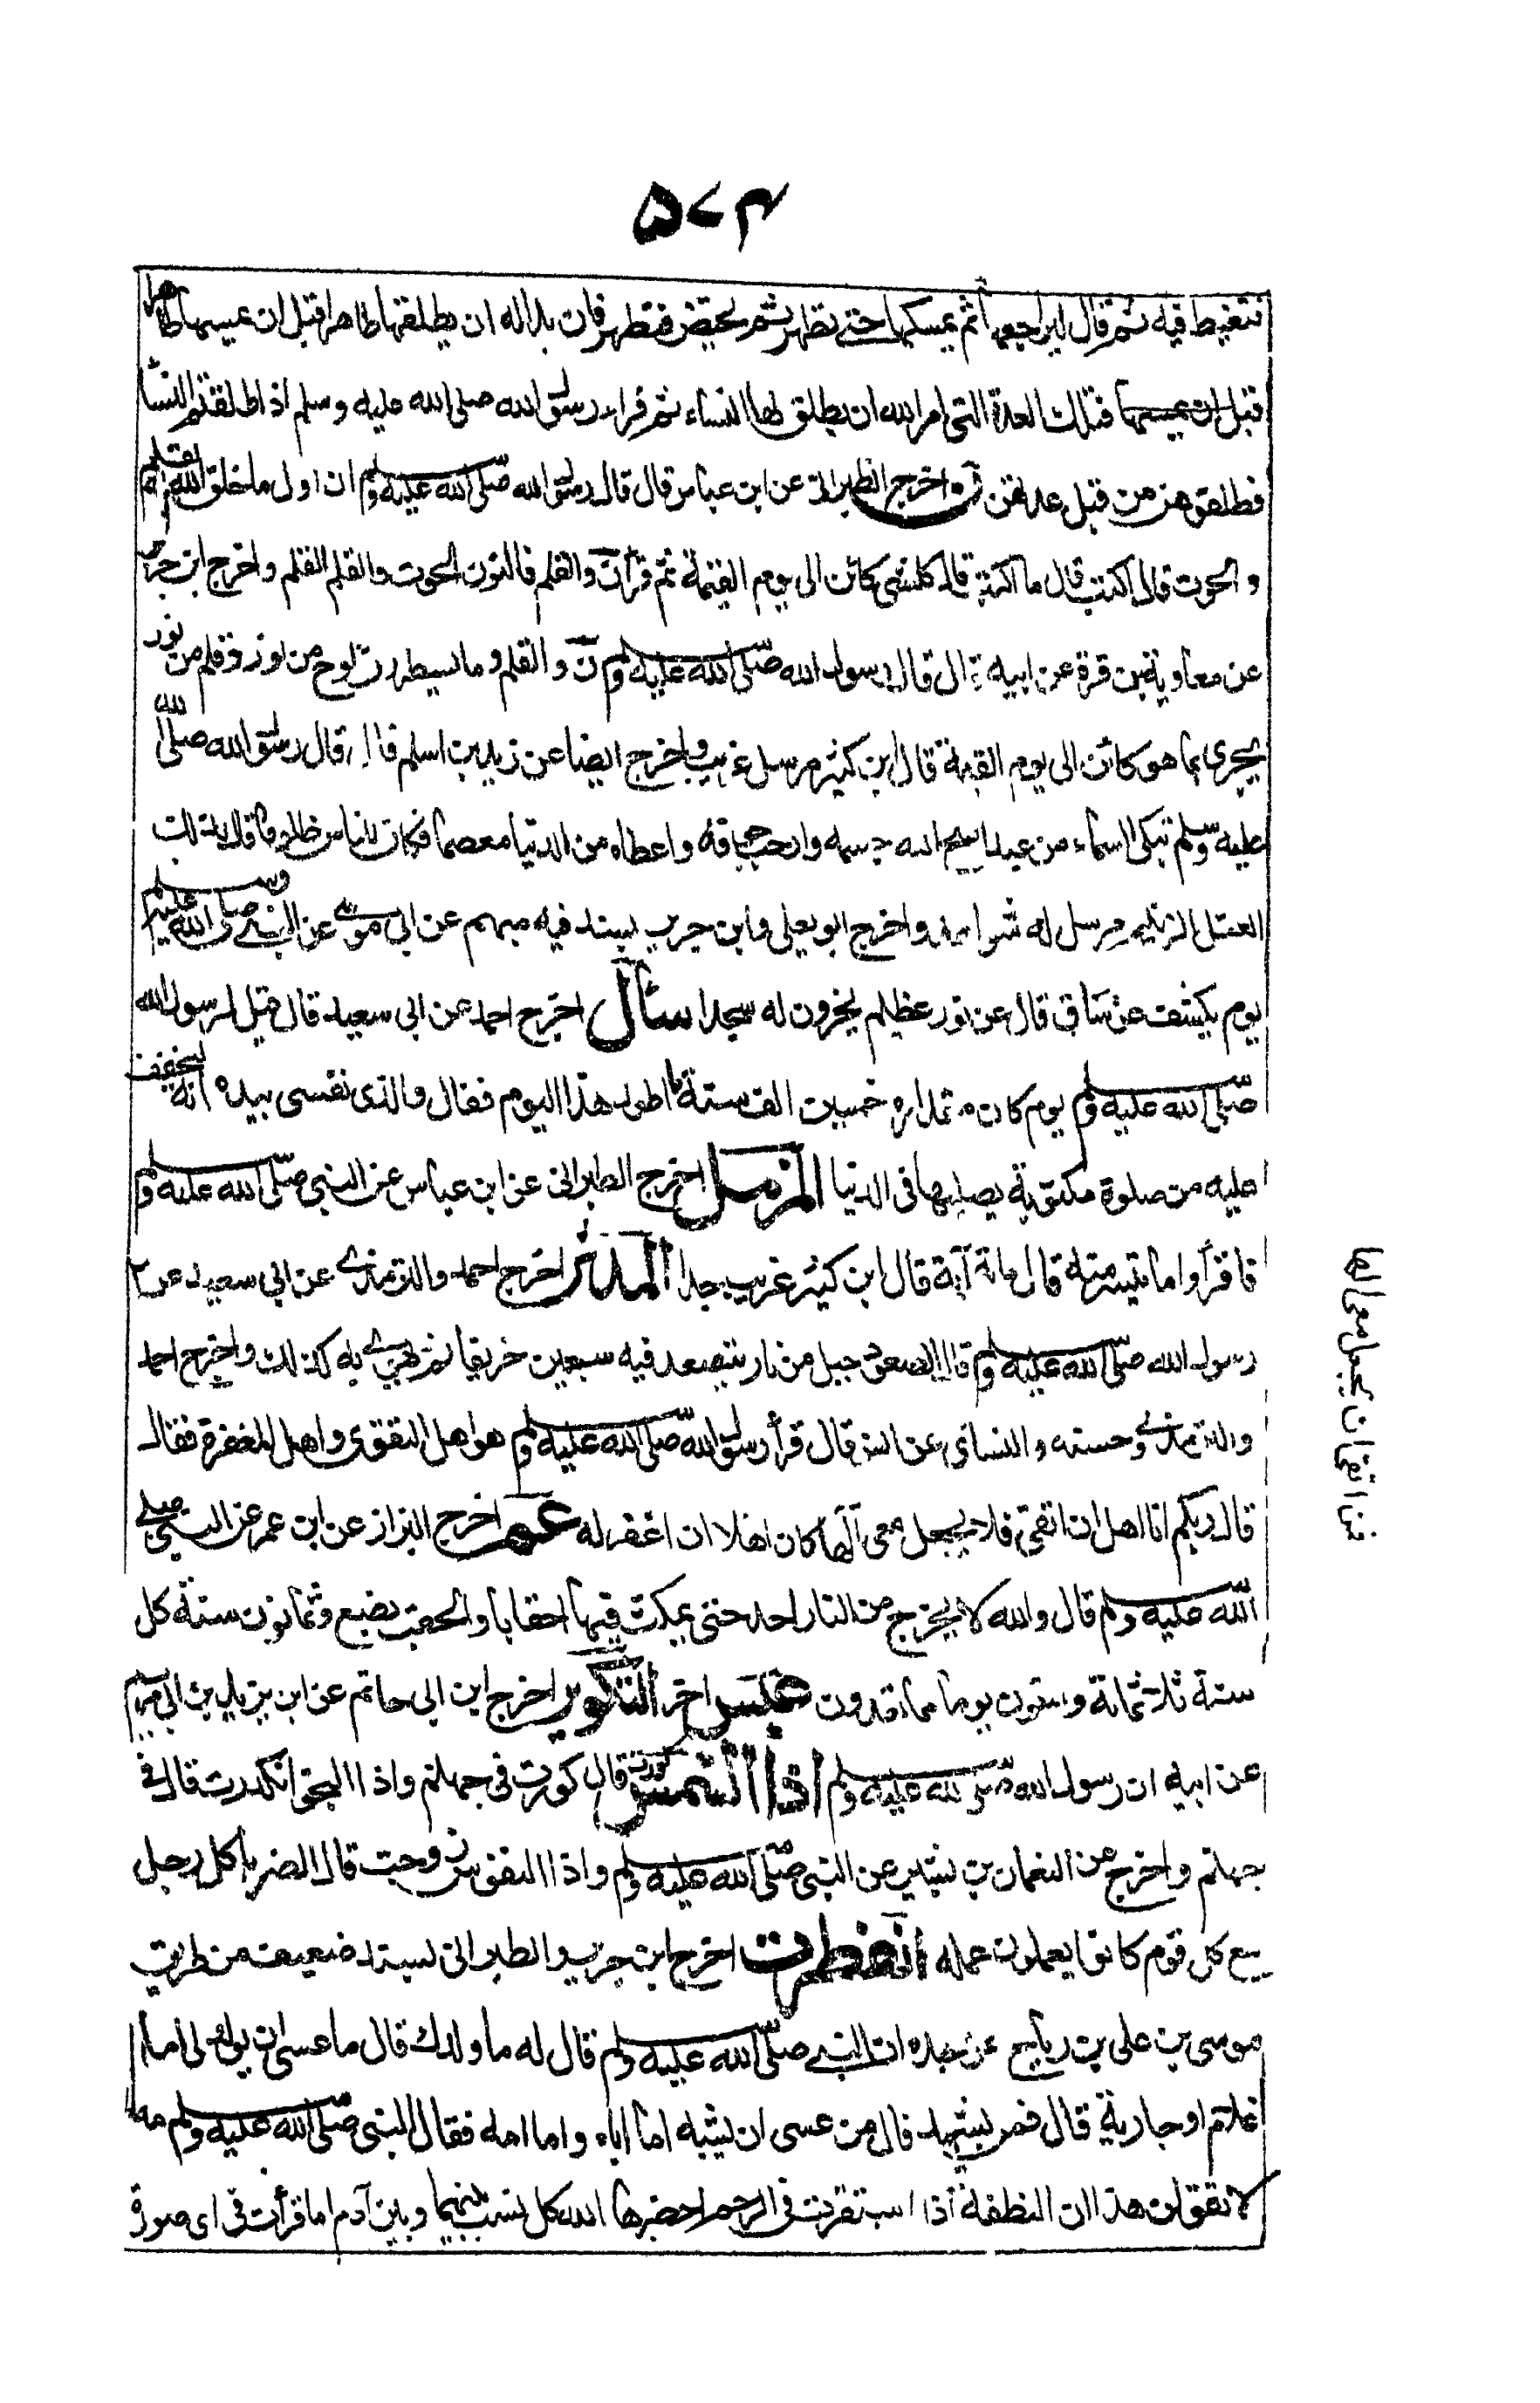 ۵۷۴
فتغيظ فيه ثم قال ليراجعها ثم يمسكها حتى تطهر ثم تحيض فتطهر فان بدا له ان يطلقها طاهرا قبل ان يمسها طاهرا
قبل ان يمسها فتلك العدة التي امر الله ان يطلق لها النساء ثم قراء رسول الله صلى الله عليه وسلم اذا طلقتم النسآ
فطلقوهن من قبل عدتهن ن اخرج الطبرانى عن ابن عباس قال قال رسول الله صلى الله عليه وسلم ان اول ما خلق الله القلم
والحوت قال اكتب قال ما اكتب قال كلشى كائن الى يوم القيمة ثم قرأ ن والقلم فالنون الحوت والقلم القلم واخرج ابن جرير
عن معاوية بن قرة عن ابيه قال قال رسول الله صلى الله عليه وسلم ن والقلم وما يسطرون لوح من نور وقلم من نور
يجرى بما هو كائن الى يوم القيمة قال ابن كثير مرسل غريب واخرج ايضا عن زيد بن اسلم قال قال رسول الله صلى الله
عليه وسلم تبكى السماء من عبد اصح الله جسمه وارحب جوفه واعطاه من الدنيا معضما فكان للناس ظلوما قال فذلك
العتل الزنيم مرسل له شواهد واخرج ابو يعلى وابن جرير بسند فيه مبهم عن ابي موسى عن النبي صلى الله عليه وسلم
يوم يكشف عن ساق قال عن نور عظيم يخرون له سجدا سأل اخرج احمد عن ابي سعيد قال قيل لرسول الله
صلى الله عليه وسلم يوم كان مقداره خمسين الف سنة ما اطول هذا اليوم فقال والذى نفسى بيده انه ليخفف
عليه من صلوة مكتوبة يصليها فى الدنيا المزمل اخرج الطبرانى عن ابن عباس عن النبي صلى الله عليه وسلم
فاقرأوا ما تيسر منه قال مائة آية قال ابن كثير غريب جدا المدثر اخرج احمد والترمذي عن ابي سعيد عن
رسول الله صلى الله عليه وسلم قال الصعود جبل من نار يتصعد فيه سبعين خريفا ثم يهوي به كذلك واخرج احمد
والترمذي وحسنه والنسائى عن انس قال قرأ رسول الله صلى الله عليه وسلم هو اهل التقوى واهل المغفرة فقال
قال ربكم انا اهل ان اتقى فلا يجعل معى الٰها كان اهلا ان اغفر له عم اخرج البزاز عن ابن عمر عن النبي صلى
الله عليه وسلم قال والله لا يخرج من النار احد حتى يمكث فيها احقابا والحقب بضع وثمانون سنة كل
سنة ثلاثمائة وستون يوما مما تعدون عبس اخر التكوير اخرج ابن ابى حاتم عن ابن يزيد بن ابي مريم
عن ابيه ان رسول الله صلى الله عليه وسلم اذا الشمس كورت قال كورت فى جهنم واذا النجوم انكدرت قال فى
جهنم واخرج عن النعمان بن بشير عن النبي صلى الله عليه وسلم واذا النفوس زوجت قال الضربا كل رجل
مع كل قوم كانوا يعملون عمله انفطرت اخرج ابن جرير والطبرانى بسند ضعيف من طريق
موسى بن على بن رباح عن جده ان النبي صلى الله عليه وسلم قال له ما ولدك قال ما عسى ان يولد لى اما
غلام او جارية قال فمن يشبه قال من عسى ان يشبه اما اباه واما امه فقال النبي صلى الله عليه وسلم مه
لا تقولن هذا ان النطفة اذا استقرت فى الرحم احضرها الله كل نسب بينهما وبين آدم اما قرأت فى اى صورة
فمن اتقى ان يجعل معى الها